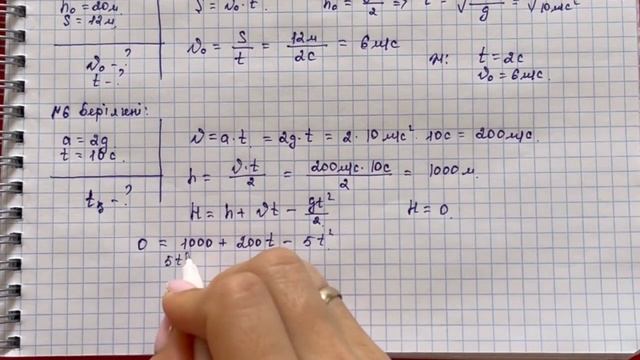 h₀ = 20м
S = 12м
v₀ - ?
t - ?
S = v₀ · t.
v₀ = S/t = 12м/2с = 6 м/с
t = 2с
v₀ = 6м/с.
№6 Берілгені:
a = 2g
t = 10с.
t - ?
v = a · t. = 2g · t = 2 · 10 м/с² · 10с = 200м/с.
h = v · t/2 = 200м/с · 10с/2 = 1000м.
H = h + vt - gt²/2.
H = 0.
0 = 1000 + 200t - 5t².
5t²